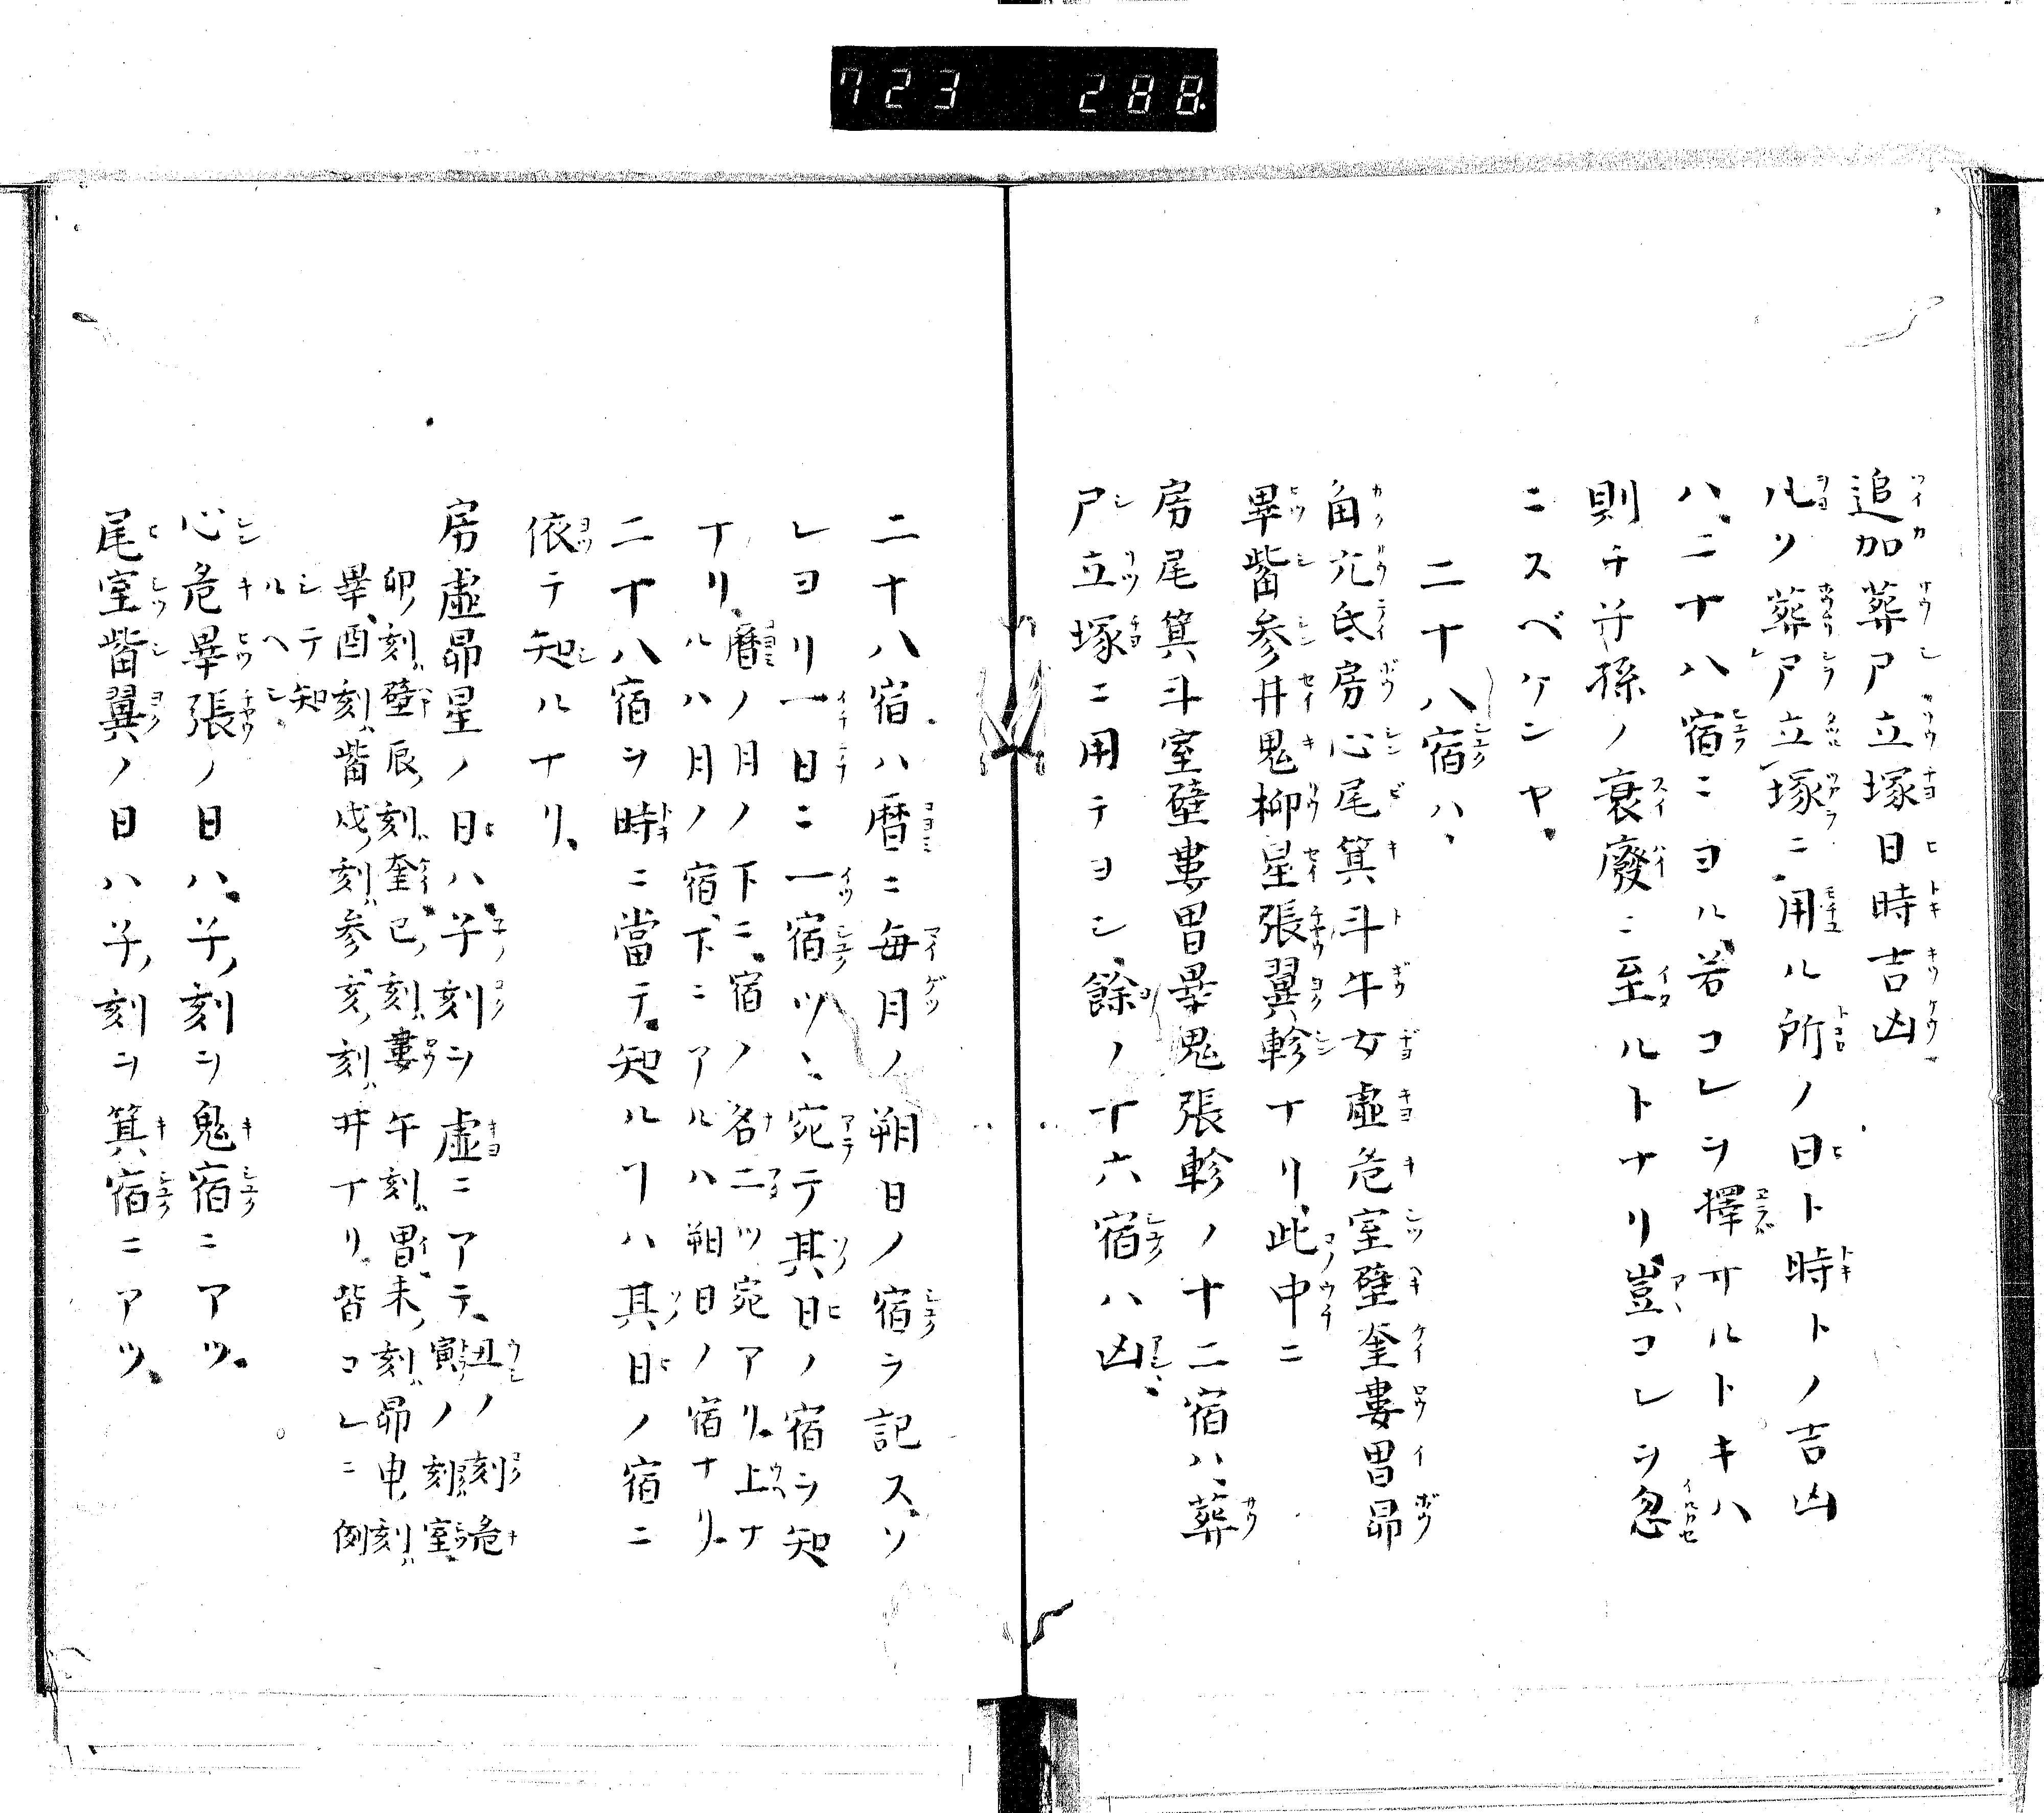 723 288.
追加葬尸立塚日時吉凶
凡ソ葬尸立塚ニ用ル所ノ日ト時トノ吉凶
ハ、二十八宿ニヨル、若コレヲ擇サルトキハ
則チ子孫ノ衰廢ニ至ルトナリ、豈コレヲ忽
ニスベケンヤ、
二十八宿ハ、
角亢氐房心尾箕斗牛女虚危室壁奎婁胃昴
畢觜参井鬼柳星張翼軫ナリ、此中ニ
房尾箕斗室壁婁胃畢鬼張軫ノ十二宿ハ、葬
尸立塚ニ用テヨシ、餘ノ十六宿ハ凶、
二十八宿ハ暦ニ毎月ノ朔日ノ宿ヲ記ス、ソ
レヨリ一日ニ一宿ツヽ宛テ其日ノ宿ヲ知
ナリ、暦ノ月ノ下ニ、宿ノ名二ツ宛アリ、上ナ
ルハ月ノ宿、下ニアルハ朔日ノ宿ナリ、
二十八宿ヲ時ニ當テ、知ルヿハ其日ノ宿ニ
依テ知ルナリ、
房虚昴星ノ日ハ、子刻ヲ虚ニアテ、丑ノ刻危
寅ノ刻室、
卯刻壁辰刻奎、巳刻婁午刻胃、未刻昴申刻
畢、酉刻觜戌刻参、亥刻井ナリ、皆コレニ例
シテ知
ルヘシ、
心危畢張ノ日ハ、子刻ヲ鬼宿ニアツ、
尾室觜翼ノ日ハ子刻ヲ箕宿ニアツ、